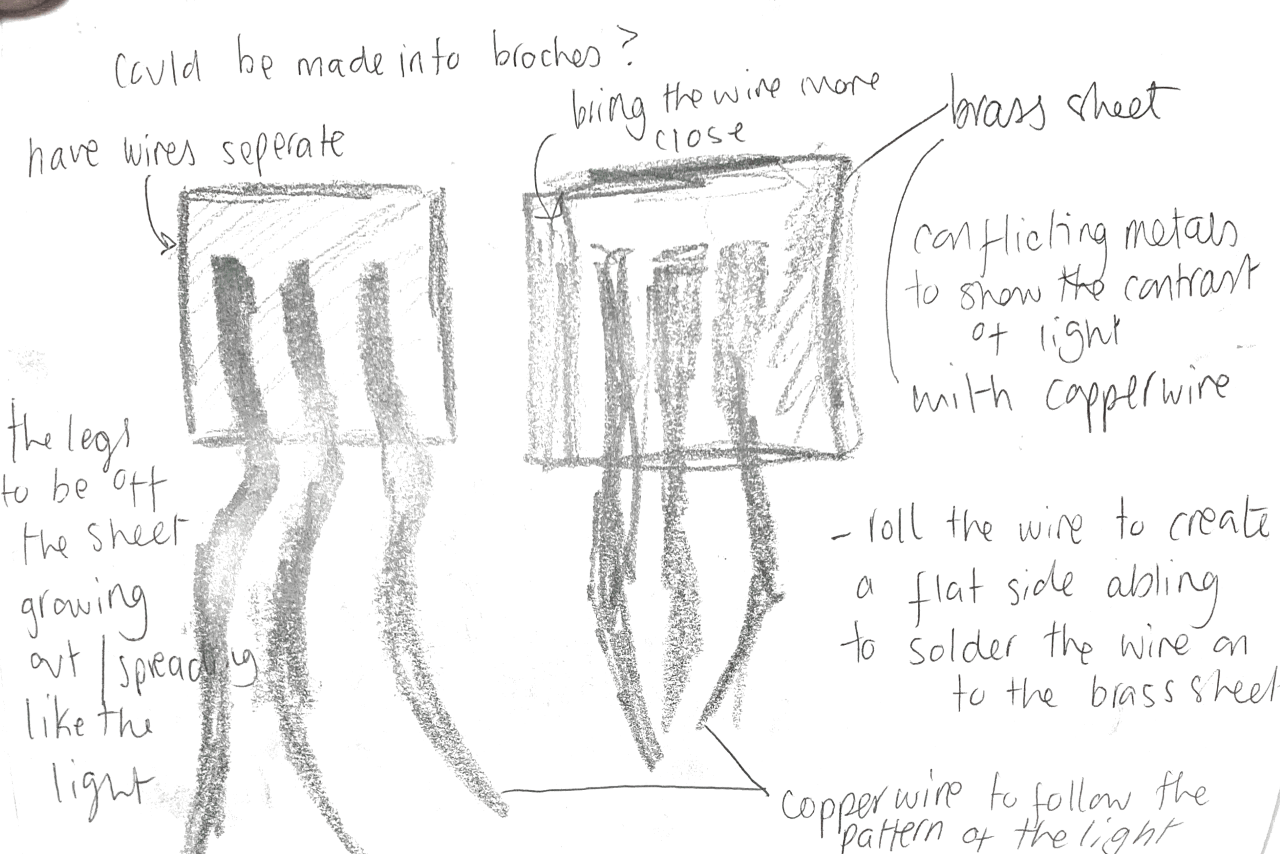 Could be made into broches?
have wires seperate
bring the wire more
close
brass sheet
conflicting metals
to show the contrast
of light
with copper wire
the legs
to be off
the sheet
growing
out / spreading
like the
light
- roll the wire to create
a flat side abling
to solder the wire on
to the brass sheet
copper wire to follow the
pattern of the light